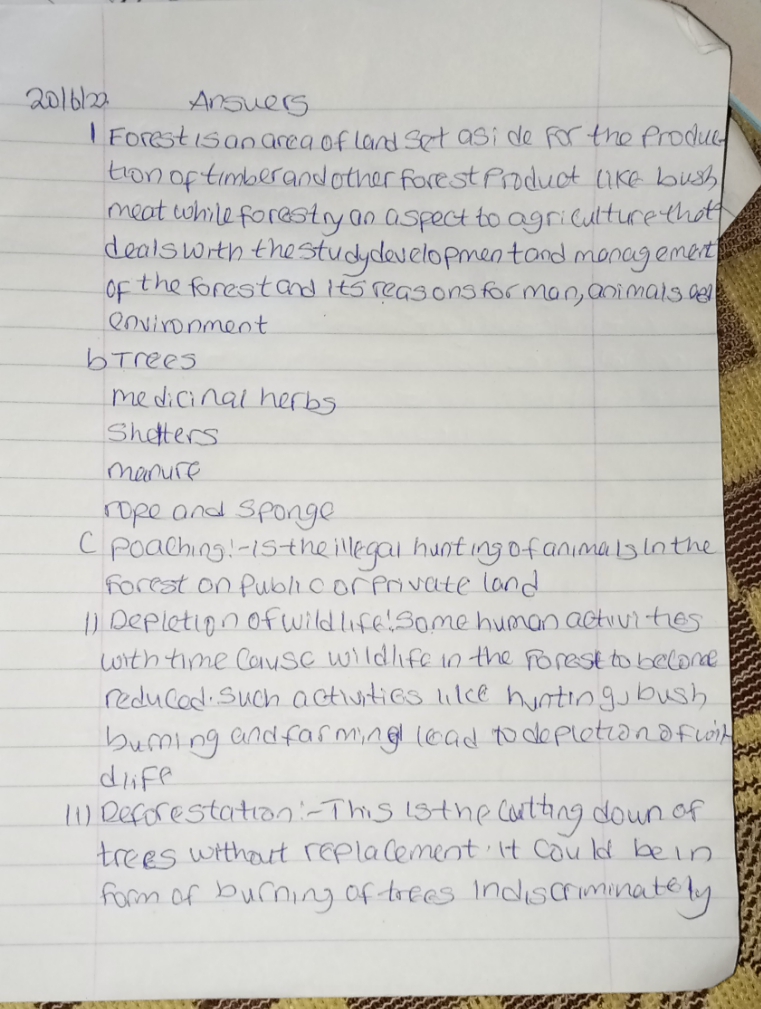 20/6/22 Answers
1 Forest is an area of land set aside for the produc-
tion of timber and other forest product like bush
meat while forestry an aspect to agriculture that
deals with the study development and management
of the forest and its reasons for man, animals
environment
b Trees
medicinal herbs
Shelters
manure
rope and sponge
C Poaching:-is the illegal hunting of animals in the
forest on public or private land
ii) Depletion of wildlife: Some human activities
with time cause wildlife in the forest to become
reduced. Such activities like hunting, bush
burning and farming lead to depletion of wil
dlife
iii) Deforestation:-This is the cutting down of
trees without replacement. it could be in
form of burning of trees indiscriminately